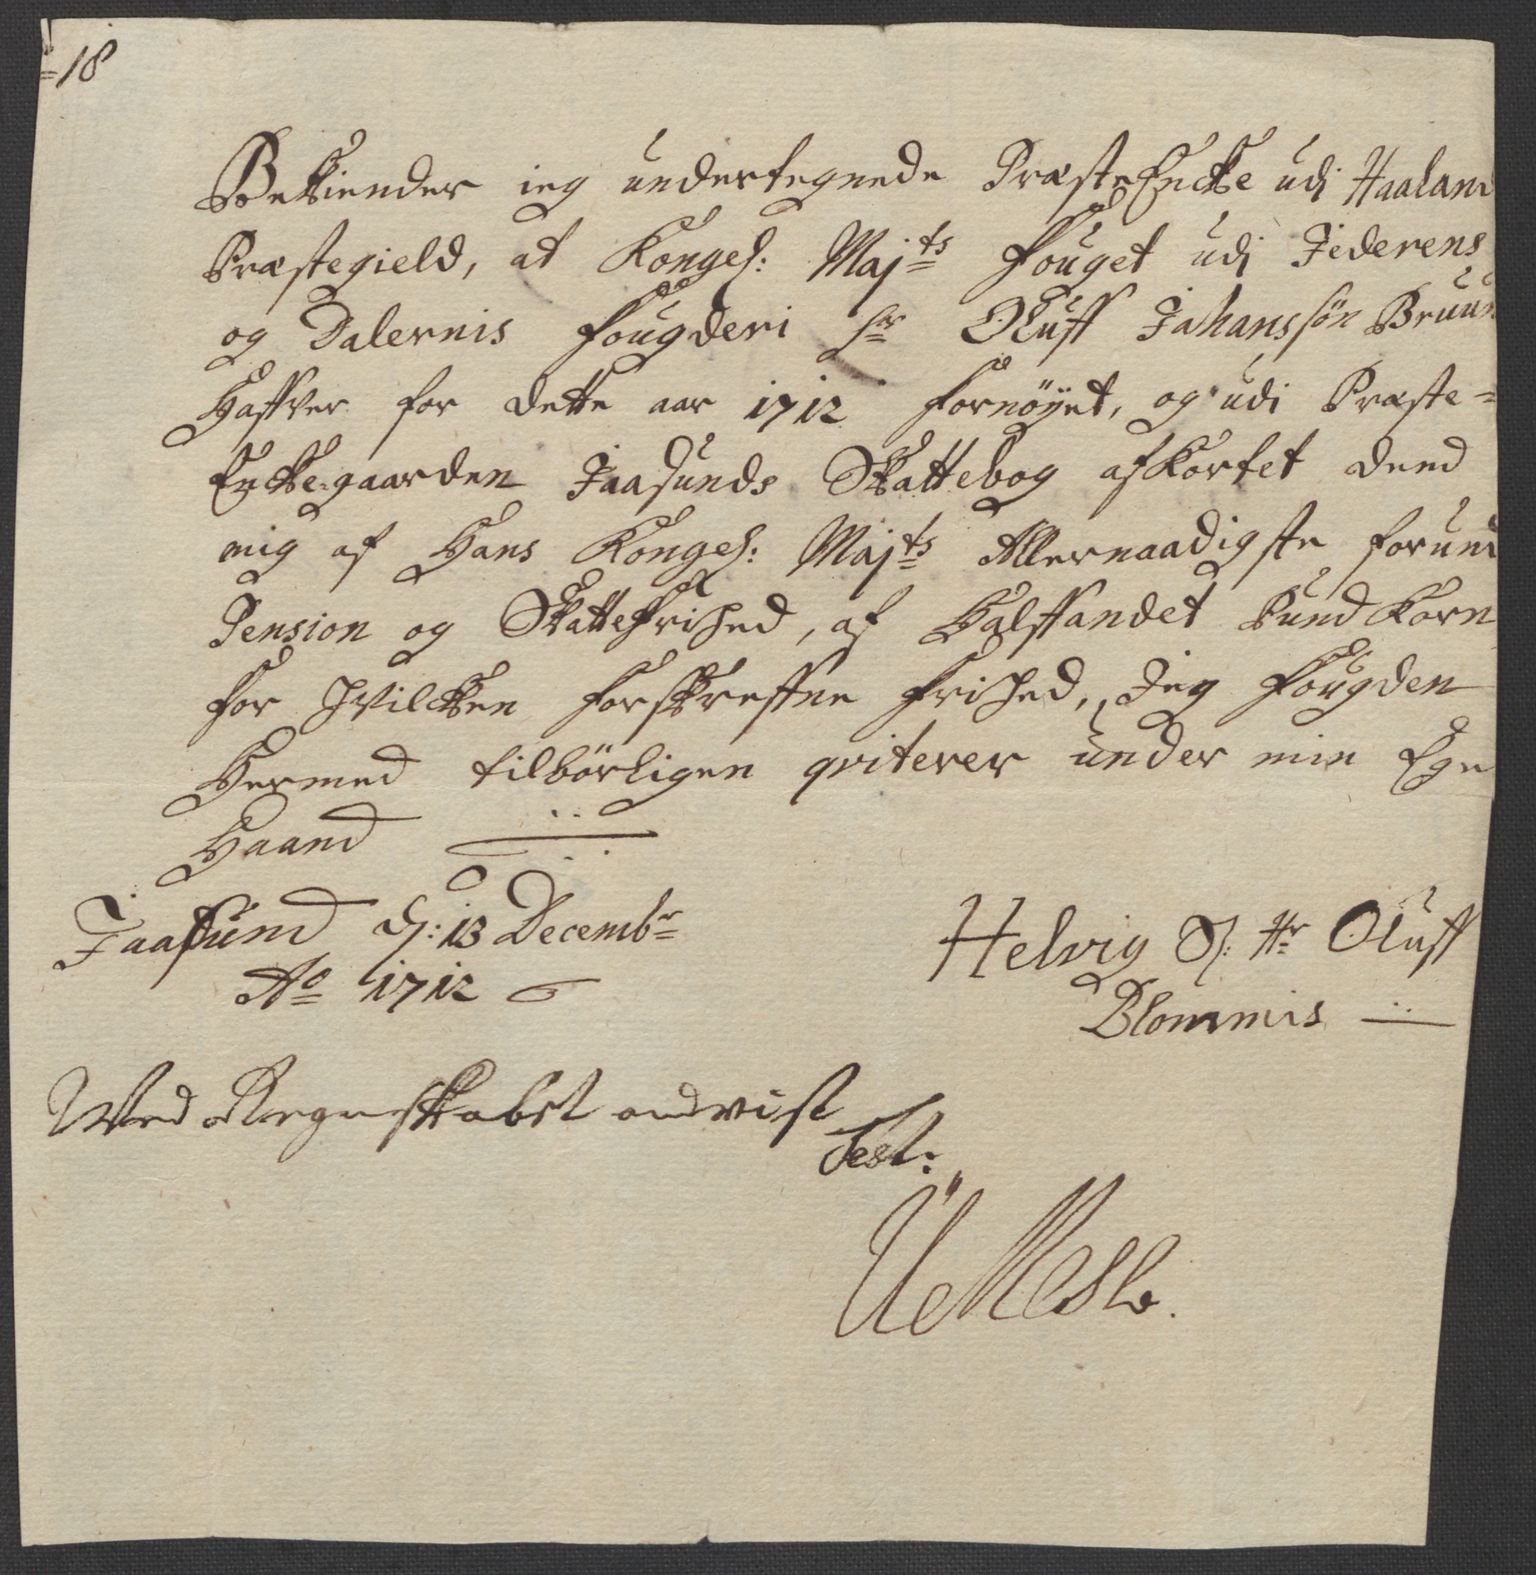 18
Bekiender ieg undertegnede PræsteEncke udj Haaland
Præstegield, at Kongel: Majts Fouget udj Jederens
og Dalernis Fougderi hr Oluff Jahanssøn Bruun
Haffver for dette aar 1712 fornöÿet, og udi Præste-
Encke-gaarden Jaasunds Skattebog afkortet dend
mig af Hans Kongel: Majts Allernaadigste forund
Pension og Skattefrihed, af halffandet Pund Korn
for hvilcken forskreffne frihed, Jeg Fougden
hermed tilbörligen qviterer under min Egen
Haand
Jaasund d: 13 Decembr
Ao 1712
Helvig Sl: Hr Oluff
Blommis
Wed Regnskabet andvist
Test: